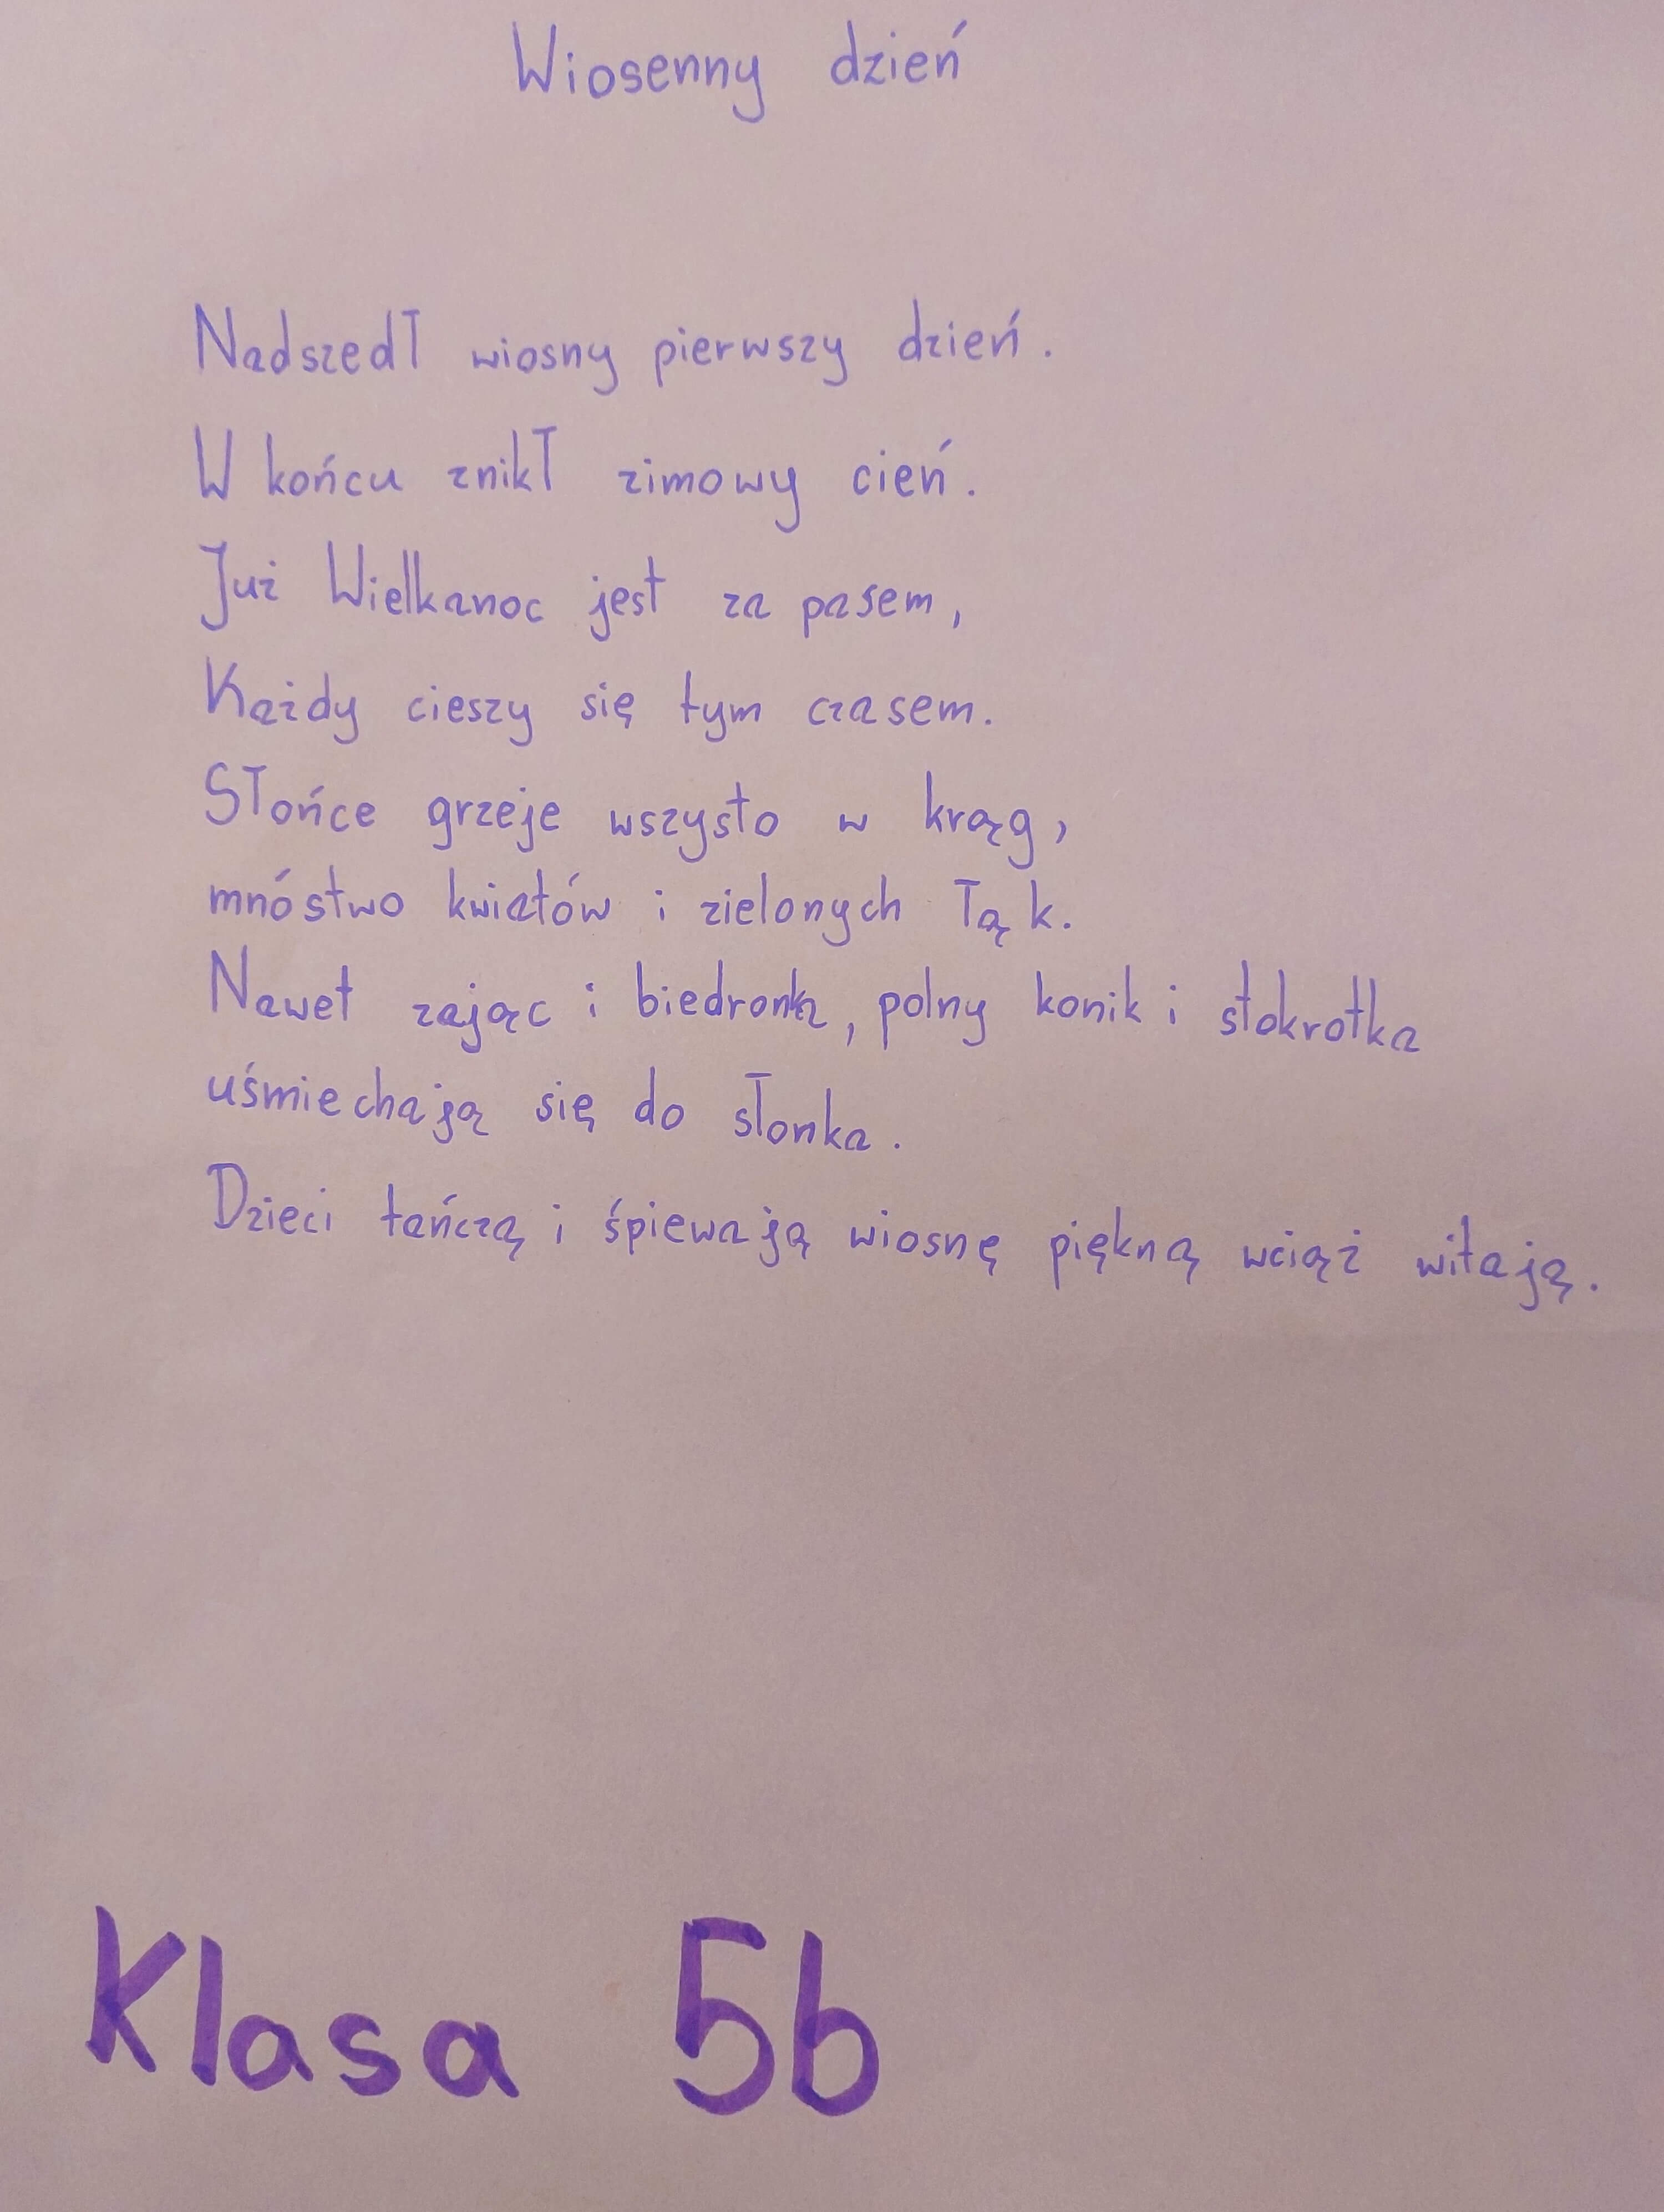 Wiosenny dzień
Nadszedł wiosny pierwszy dzień.
W końcu znikł zimowy cień.
Już Wielkanoc jest za pasem,
Każdy cieszy się tym czasem.
Słońce grzeje wszysto w krąg,
mnóstwo kwiatów i zielonych łąk.
Nawet zając i biedronka, polny konik i stokrotka
uśmiechają się do słonka.
Dzieci tańczą i śpiewają wiosnę piękną wciąż witają.
Klasa 5b